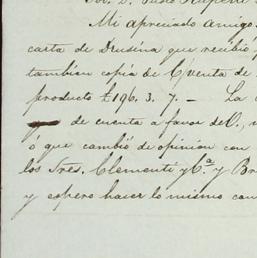 Mi apreciado amigo.
carta de Drusina que recibió
tambien copia de C/venta de
producto £196. 3. 7. — La
de cuenta a favor de V.,
ó que cambió de opinion con
los Sres. Clementi y Cª. y Br
y espero hacer lo mismo con